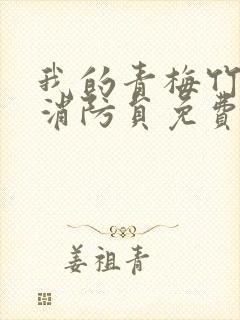 我的青梅竹
消防员免费
姜祖青